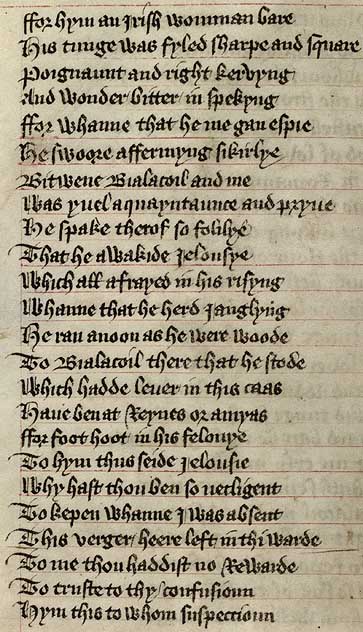 ffor hym an Irish womman bare
His tunge was fyled sharpe and square
Poignaunt and right kervyng
And wonder bitter in spekyng
ffor whanne that he me gan espie
He swoore affermyng sikirlye
Bitwene Bialacoil and me
Was yuel aquayntaunce and pryue
He spake therof so folilye
That he awakide Ielousye
Which all afrayed in his risyng
Whanne that he herd Ianglyng
He ran anoon as he were woode
To Bialacoil there that he stode
Which hadde leuer in this caas
Haue ben at Reynes or amyas
ffor foot hoot in his felonye
To hym thus seide Ielousie
Why hast thou ben so necligent
To kepen whanne I was absent
This verger heere left in thi warde
To me thou haddist no Rewarde
To truste to thy confusioun
Hym this to whom suspeccioun